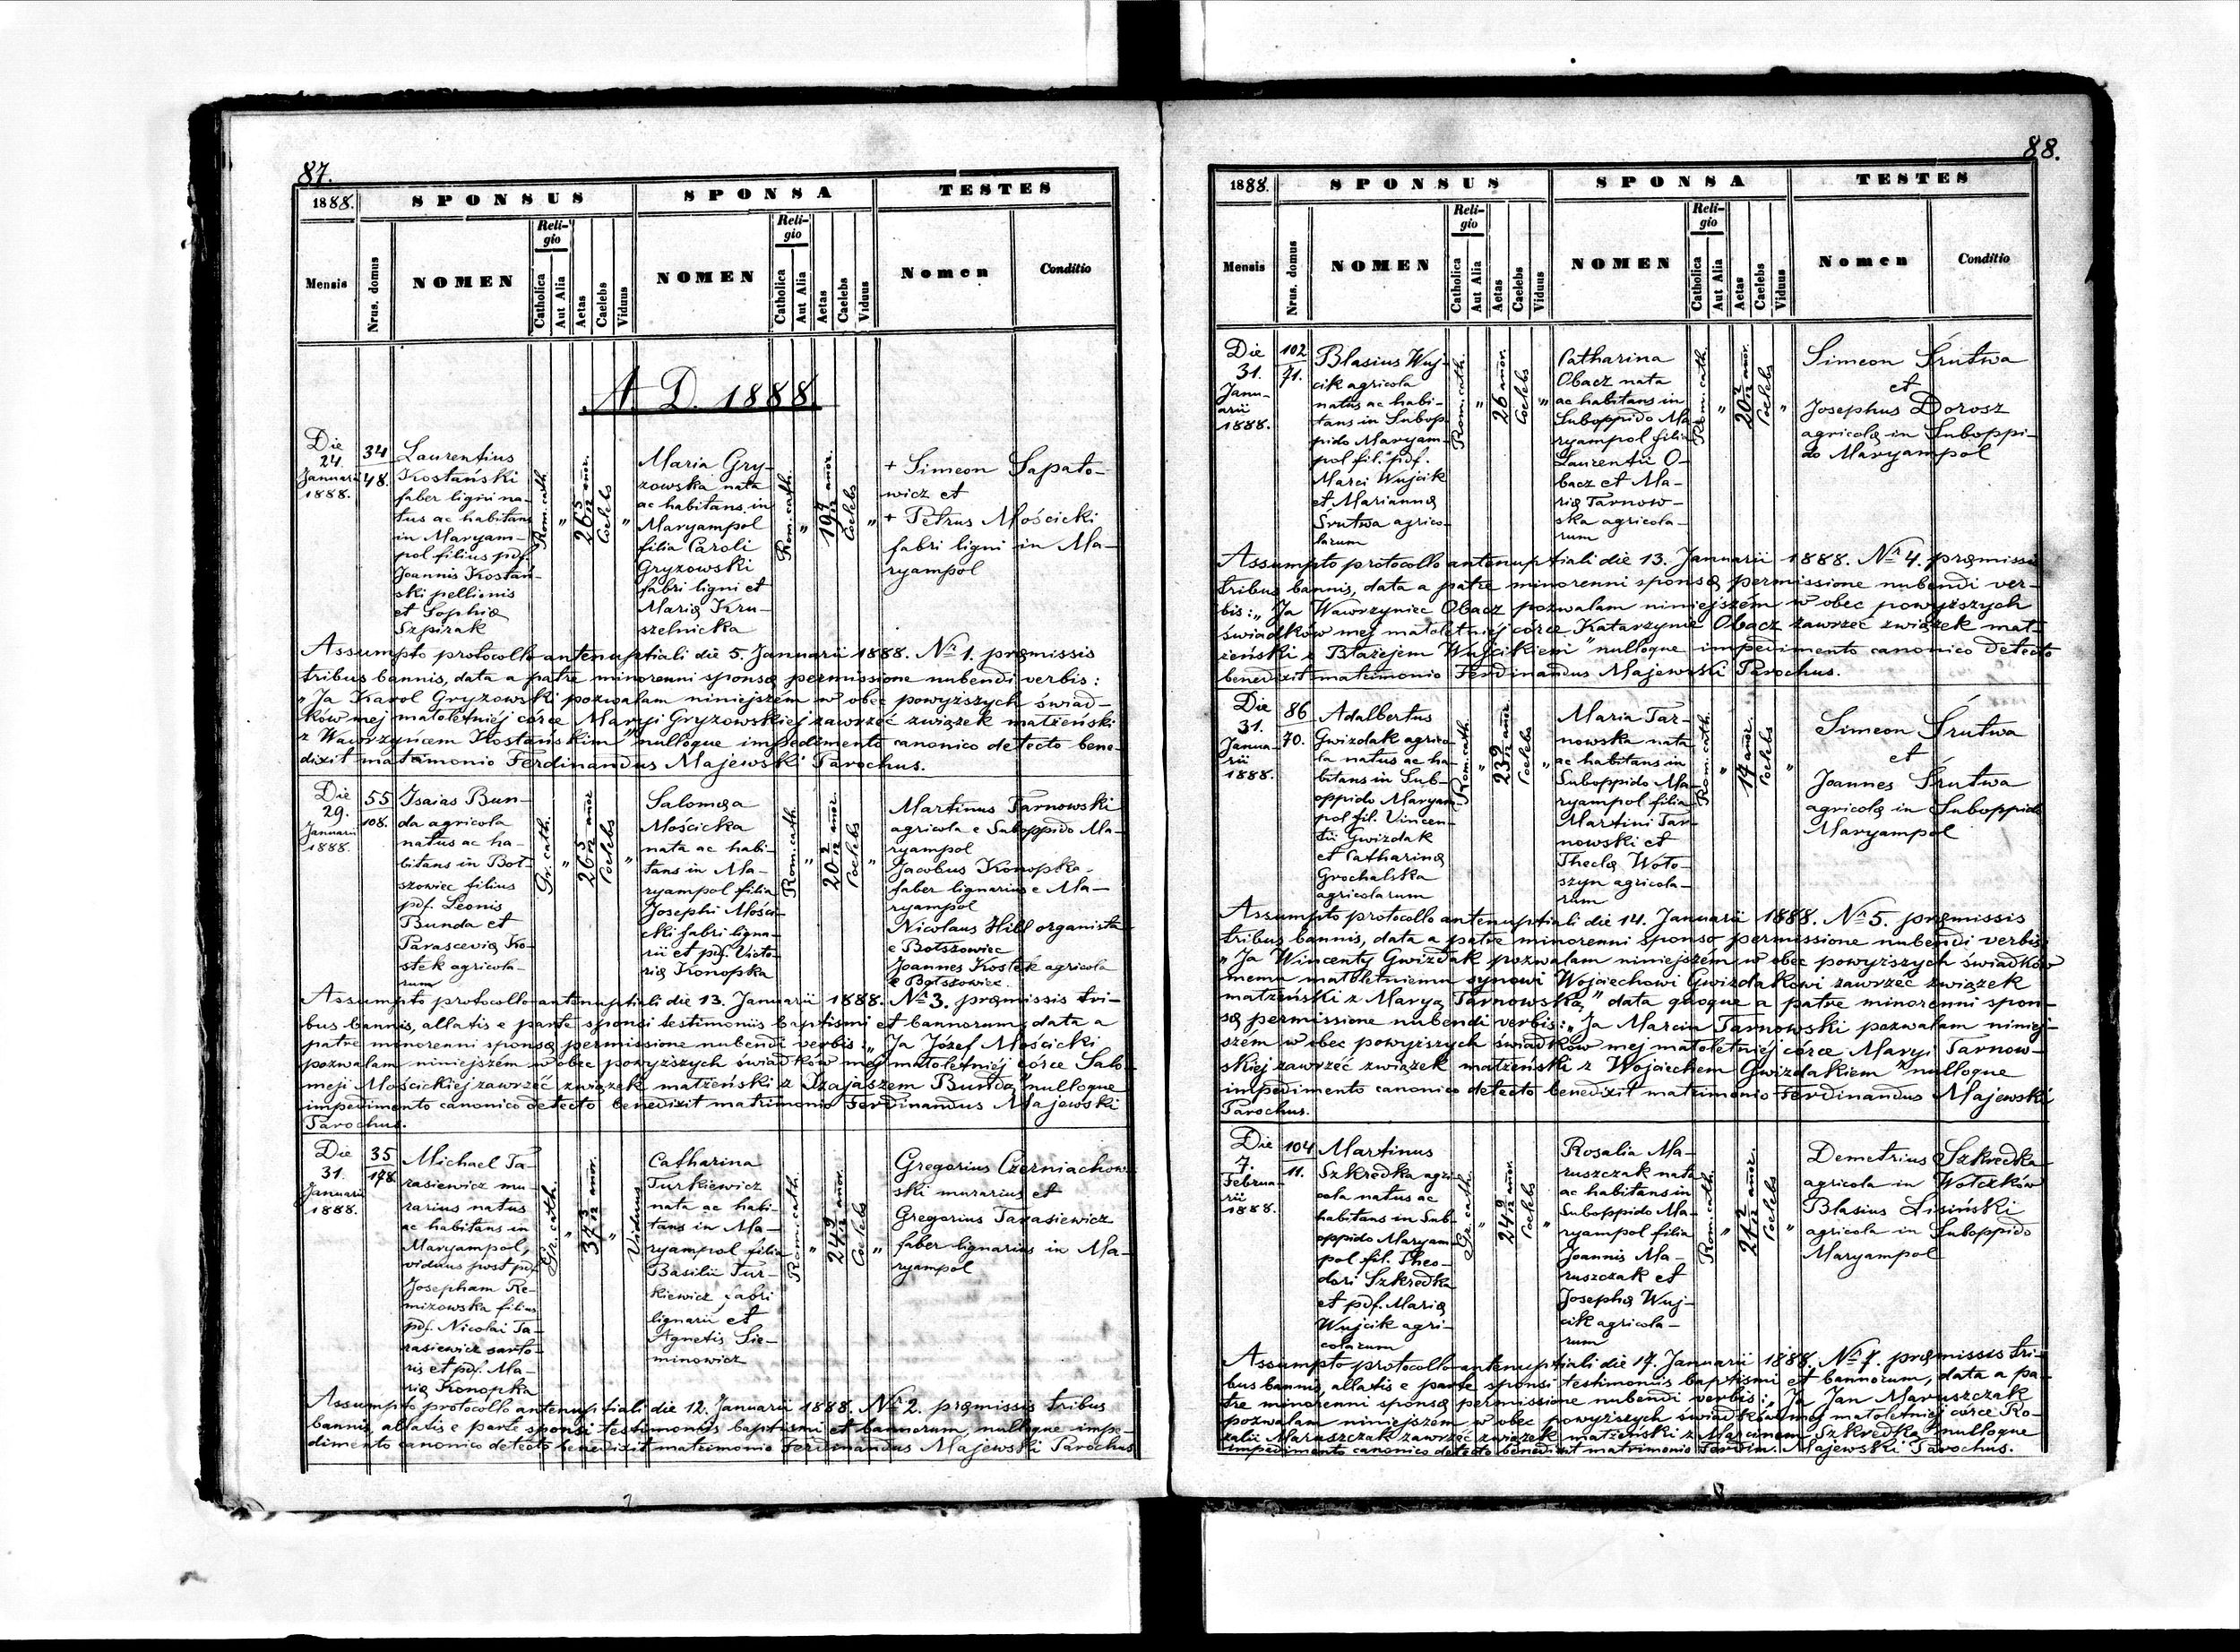 87.
1888. SPONSUS SPONSA TESTES
Mensis Nrus. domus NOMEN Religio Catholica Aut Alia Aetas Caelebs Viduus NOMEN Religio Catholica Aut Alia Aetas Caelebs Viduus Nomen Conditio
A. D. 1888.
Die
24.
Januarii
1888.
34
48.
Laurentius
Kostański
faber ligni na-
tus ac habitans
in Maryam-
pol filius pdf.
Joannis Kostań-
ski pellionis
et Sophię
Szpirak
Rom. cath.
"
26 5/12 annor.
Coelebs
"
Maria Gry-
zowska nata
ac habitans in
Maryampol
filia Caroli
Gryzowski
fabri ligni et
Marię Kru-
szelnicka
Rom. cath.
"
Coelebs
"
+ Simeon Sapato-
wicz et
+ Petrus Mościcki
fabri ligni in Ma-
ryampol
Assumpto protocollo antenuptiali die 5. Januarii 1888. Nr. 1. pręmissis
tribus bannis, data a patre minorenni sponsę permissione nubendi verbis:
"Ja Karol Gryzowski pozwalam niniejszém w obec powyższych świad-
ków mej małoletniéj córce Maryi Gryzowskiej zawrzéć związek małżeński
z Wawrzyńcem Kostańskim" nulloque impedimento canonico detecto bene-
dixit matrimonio Ferdinandus Majewski Parochus.
Die
29.
Januarii
1888.
55
108.
Isaias Bun-
da agricola
natus ac ha-
bitans in Boł-
szowiec filius
pdf. Leonis
Bunda et
Parascevię Ko-
stek agricola-
rum
Gr. cath.
"
26 5/12 annor.
Coelebs
"
Salomea
Mościcka
nata ac habi-
tans in Ma-
ryampol filia
Josephi Mości-
cki fabri ligna-
rii et pdf. Victo-
rię Konopka
Rom. cath.
"
20 2/12 annor.
Coelebs
"
Martinus Tarnowski
agricola e Suboppido Ma-
ryampol
Jacobus Konopka
faber lignarius e Ma-
ryampol
Nicolaus Hill organista
e Bołszowiec
Joannes Kostek agricola
e Bołszowiec.
Assumpto protocollo antenuptiali die 13. Januarii 1888. Nr. 3. pręmissis tri-
bus bannis, allatis e parte sponsi testimoniis baptismi et bannorum, data a
patre minorenni sponsę permissione nubendi verbis: "Ja Józef Mościcki
pozwalam niniejszém w obec powyższych świadków mej małoletniéj córce Salo-
meji Mościckiej zawrzéć związek małżeński z Izajaszem Bundą" nulloque
impedimento canonico detecto benedixit matrimonio Ferdinandus Majewski
Parochus.
Die
31.
Januarii
1888.
35
178.
Michael Ta-
rasiewicz mu-
rarius natus
ac habitans in
Maryampol,
viduus post pdf.
Josepham Re-
mizowska filius
pdf. Nicolai Ta-
rasiewicz sarto-
ris et pdf. Ma-
rię Konopka
Gr. cath.
"
37 3/12 annor.
"
Viduus
Catharina
Turkiewicz
nata ac habi-
tans in Ma-
ryampol filia
Basilii Tur-
kiewicz fabri
lignarii et
Agnetis Sie-
minowicz
Rom. cath.
"
24 9/12 annor.
Coelebs
"
Gregorius Czerniachow-
ski murarius et
Gregorius Tarasiewicz
faber lignarius in Ma-
ryampol
Assumpto protocollo antenuptiali die 12. Januarii 1888. Nr. 2. pręmissis tribus
bannis, allatis e parte sponsi testimoniis baptismi et bannorum, nulloque impe-
dimento canonico detecto benedixit matrimonio Ferdinandus Majewski Parochus
88.
1888. SPONSUS SPONSA TESTES
Mensis Nrus. domus NOMEN Religio Catholica Aut Alia Aetas Caelebs Viduus NOMEN Religio Catholica Aut Alia Aetas Caelebs Viduus Nomen Conditio
Die
31.
Janu-
arii
1888.
102
71.
Blasius Wuj-
cik agricola
natus ac habi-
tans in Subop-
pido Maryam-
pol fil. pdf.
Marci Wujcik
et Mariannę
Srutwa agrico-
larum
Rom. cath.
"
26 annor.
Coelebs
"
Catharina
Obacz nata
ac habitans in
Suboppido Ma-
ryampol filia
Laurentii O-
bacz et Ma-
rię Tarnow-
ska agricola-
rum
Rom. cath.
"
20 2/12 annor.
Coelebs
"
Simeon Śrutwa
et
Josephus Dorosz
agricolę in Suboppi-
do Maryampol
Assumpto protocollo antenuptiali die 13. Januarii 1888. Nr. 4. pręmissis
tribus bannis, data a patre minorenni sponsę permissione nubendi ver-
bis: "Ja Wawrzyniec Obacz pozwalam niniejszém w obec powyższych
świadków mej małoletniéj córce Katarzynie Obacz zawrzéć związek mał-
żeński z Błażejem Wujcikiem" nulloque impedimento canonico detecto
benedixit matrimonio Ferdinandus Majewski Parochus.
Die
31.
Janua-
rii
1888.
86
70.
Adalbertus
Gwizdak agrico-
la natus ac ha-
bitans in Sub-
oppido Maryam-
pol fil. Vincen-
tii Gwizdak
et Catharinę
Grochalska
agricolarum
Rom. cath.
"
23 9/12 annor.
Coelebs
"
Maria Tar-
nowska nata
ac habitans in
Suboppido Ma-
ryampol filia
Martini Tar-
nowski et
Theclę Woło-
szyn agricola-
rum
Rom. cath.
"
17 annor.
Coelebs
"
Simeon Śrutwa
et
Joannes Śrutwa
agricolę in Suboppido
Maryampol
Assumpto protocollo antenuptiali die 14. Januarii 1888. Nr. 5. pręmissis
tribus bannis, data a patre minorenni sponso permissione nubendi verbis:
"Ja Wincenty Gwizdak pozwalam niniejszém w obec powyższych świadków
memu małoletniemu synowi Wojciechowi Gwizdakowi zawrzéć związek
małżeński z Maryą Tarnowską," data quoque a patre minorenni spon-
sę permissione nubendi verbis: "Ja Marcin Tarnowski pozwalam niniej-
szém w obec powyższych świadków mej małoletniéj córce Maryi Tarnow-
skiej zawrzéć związek małżeński z Wojciechem Gwizdakiem" nulloque
impedimento canonico detecto benedixit matrimonio Ferdinandus Majewski
Parochus.
Die
7.
Februa-
rii
1888.
104
11.
Martinus
Szkredka agri-
cola natus ac
habitans in Sub-
oppido Maryam-
pol fil. Theo-
dori Szkredka
et pdf. Marię
Wujcik agri-
colarum
Gr. cath.
"
24 9/12 annor.
Coelebs
"
Rosalia Ma-
ruszczak nata
ac habitans in
Suboppido Ma-
ryampol filia
Joannis Ma-
ruszczak et
Josephę Wuj-
cik agricola-
rum
Rom. cath.
"
21 2/12 annor.
Coelebs
"
Demetrius Szkredka
agricola in Wołczków
Blasius Lisiński
agricola in Suboppido
Maryampol
Assumpto protocollo antenuptiali die 17. Januarii 1888. Nr. 7. pręmissis tri-
bus bannis, allatis e parte sponsi testimoniis baptismi et bannorum, data a pa-
tre minorenni sponsę permissione nubendi verbis: "Ja Jan Maruszczak
pozwalam niniejszém w obec powyższych świadków mej małoletniéj córce Ro-
zalii Maruszczak zawrzéć związek małżeński z Marcinem Szkredką" nulloque
impedimento canonico detecto benedixit matrimonio Ferdin. Majewski Parochus.